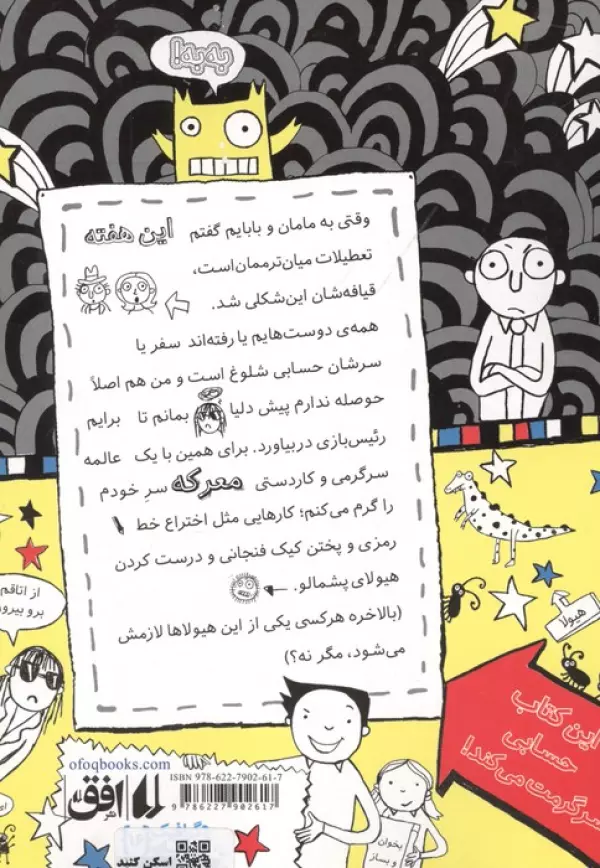 به‌به!
وقتی به مامان و بابایم گفتم این هفته
تعطیلات میان‌ترممان است،
قیافه‌شان این‌شکلی شد.
همه‌ی دوست‌هایم یا رفته‌اند سفر یا
سرشان حسابی شلوغ است و من هم اصلاً
حوصله ندارم پیش دلیا بمانم تا برایم
رئیس‌بازی دربیاورد. برای همین با یک عالمه
سرگرمی و کاردستی معرکه سرِ خودم
را گرم می‌کنم؛ کارهایی مثل اختراع خط
رمزی و پختن کیک فنجانی و درست کردن
هیولای پشمالو.
(بالاخره هرکسی یکی از این هیولاها لازمش
می‌شود، مگر نه؟)
از اتاقم
برو بیرون
هیولا
این کتاب
حسابی
سرگرمت می‌کند!
ofoqbooks.com
افق
نشر
ISBN 978-622-7902-61-7
9 786227 902617
اسکن کنید
بخوان
و بساز